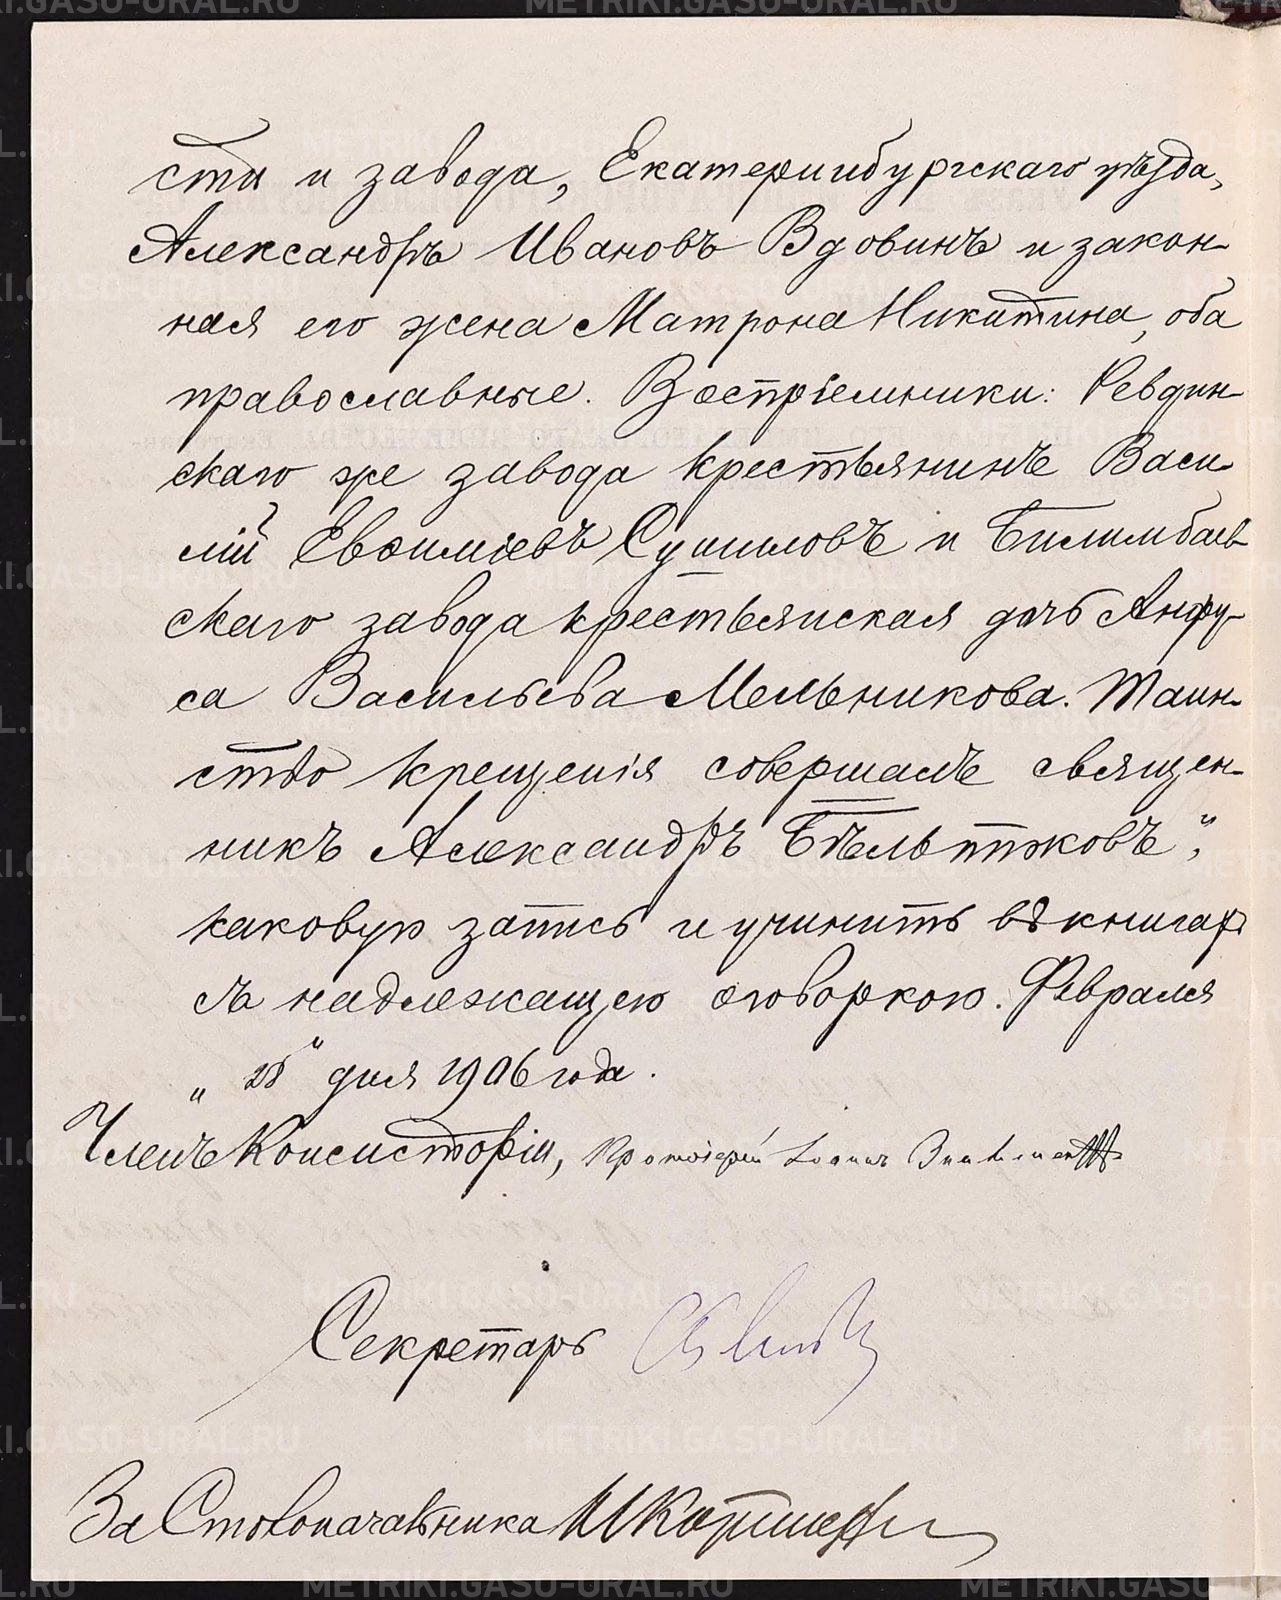 сти и завода, Екатеринбургскаго уѣзда,
Александръ Ивановъ Вдовинъ и закон-
ная его жена Матрона Никитина, оба
православные. Воспріемники: Ревдин-
скаго же завода крестьянинъ Васи-
лій Евѳиміевъ Сушиловъ и Билимбаев-
скаго завода крестьянская дочь Анфу-
са Васильева Мельникова. Таин-
ство крещенія совершалъ священ-
никъ Александръ Бѣльтюковъ",
каковую запись и учинить въ книгах
съ надлежащею оговоркою. Февраля
" 28 " дня 1906 года.
Членъ Консисторіи, Протоіерей Іоаннъ
Секретарь
За Столоначальника
METRIKI.GASO-URAL.RU